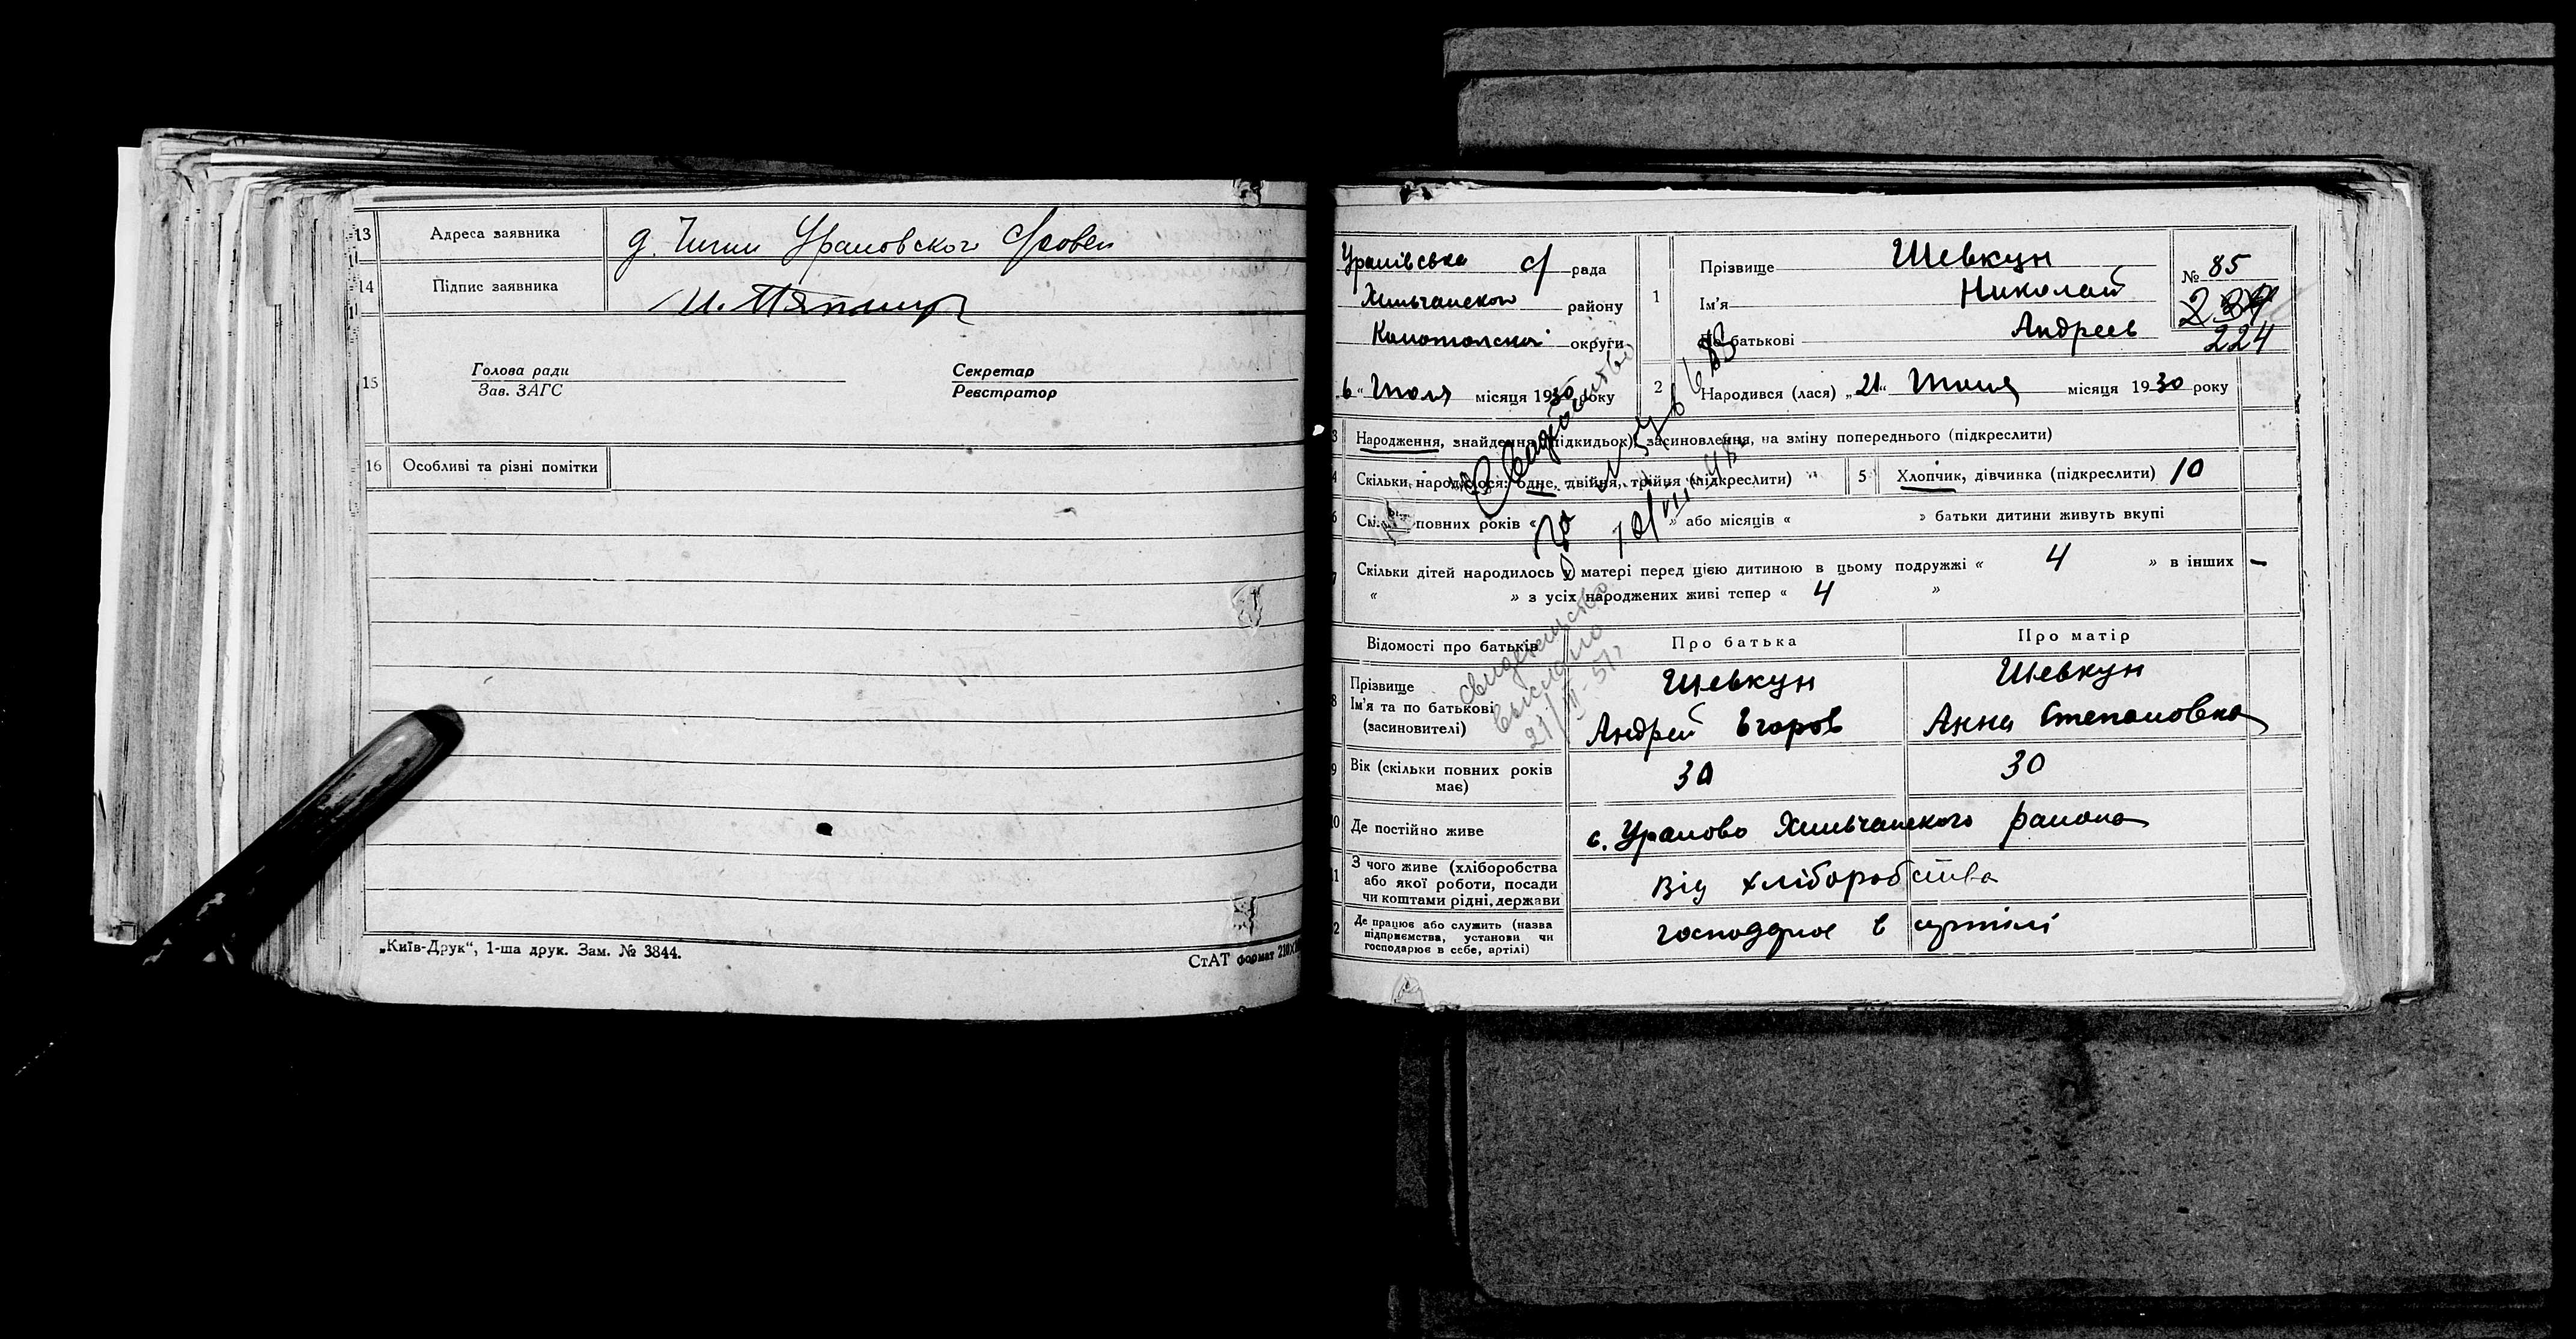 13 Адреса заявника
14 Підпис заявника
15 Голова ради
Зав. ЗАГС
Секретар
Реєстратор
16 Особливі та різні помітки
„Київ-Друк“, 1-ша друк. Зам. № 3844.
СтАТ формат
Урамівська с/ рада
району
округи
6 “ Июля місяця 1930 року
1 Прізвище Шевкун
Ім'я Николай
По батькові Андреев
№ 85
224
2 Народився (лася) „21“ місяця 1930 року
3 Народження, знайдення (підкидьок), засиновлення, на зміну попереднього (підкреслити)
4 Скільки народилося: одне, двійня, трійня (підкреслити)
5 Хлопчик, дівчинка (підкреслити) 10
6 повних років « » або місяців « » батьки дитини живуть вкупі
7 Скільки дітей народилось у матері перед цією дитиною в цьому подружжі « 4 » в інших –
« » з усіх народжених живі тепер « 4 »
Відомості про батьків
Про батька
Про матір
8 Прізвище
Ім'я та по батькові
(засиновителі)
Шевкун
Андрей Егоров
Шевкун
Анна Степановна
9 Вік (скільки повних років
має)
30
30
10 Де постійно живе
с. Урамово Хильчанского района
11 З чого живе (хліборобства
або якої роботи, посади
чи коштами рідні, держави
Від хліборобства
12 Де працює або служить (назва
підприємства, установи чи
господарює в себе, артілі)
господарює в артілі
Свидетельство
выслано